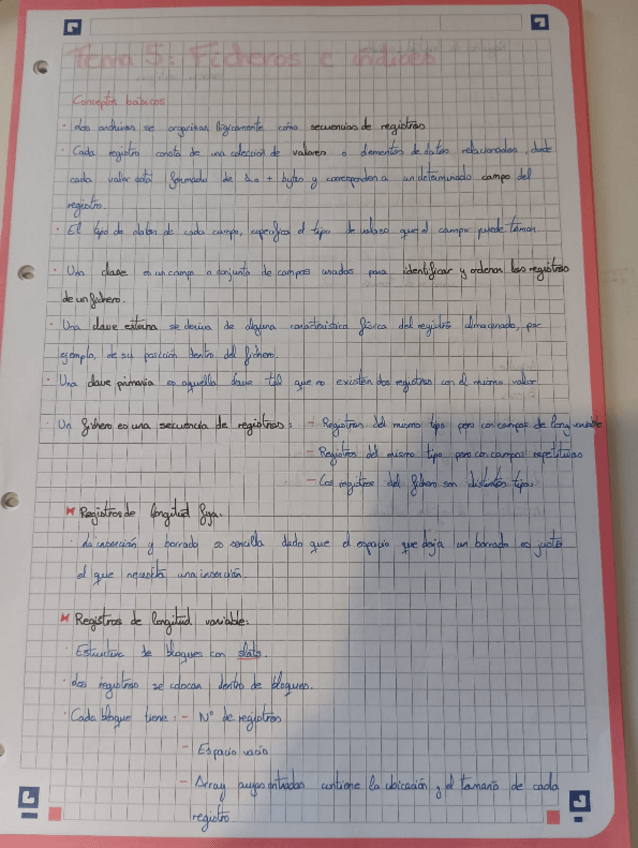 Tema 5: Ficheros e índices
Conceptos básicos
· Los archivos se organizan lógicamente como secuencias de registros
· Cada registro consta de una colección de valores o elementos de datos relacionados, donde
cada valor está formado de 1 o + bytes y corresponden a un determinado campo del
registro.
· El tipo de datos de cada campo, especifica el tipo de valores que el campo puede tomar
· Una clave es un campo o conjunto de campos usados para identificar y ordenar los registros
de un fichero.
· Una clave externa se deriva de alguna característica física del registro almacenado, por
ejemplo, de su posición dentro del fichero.
· Una clave primaria es aquella clave tal que no existen dos registros con el mismo valor
· Un fichero es una secuencia de registros: - Registros del mismo tipo pero con campos de long variable
- Registros del mismo tipo pero con campos repetitivos
- Los registros del fichero son distintos tipos.
* Registros de longitud fija.
· La inserción y borrado es sencilla dado que el espacio que deja un borrado es justo
el que necesita una inserción.
* Registros de longitud variable:
· Estructura de bloques con slots.
· Los registros se colocan dentro de bloques.
· Cada bloque tiene: - Nº de registros
- Espacio vacío
- Array cuyas entradas contiene la ubicación y el tamaño de cada
registro